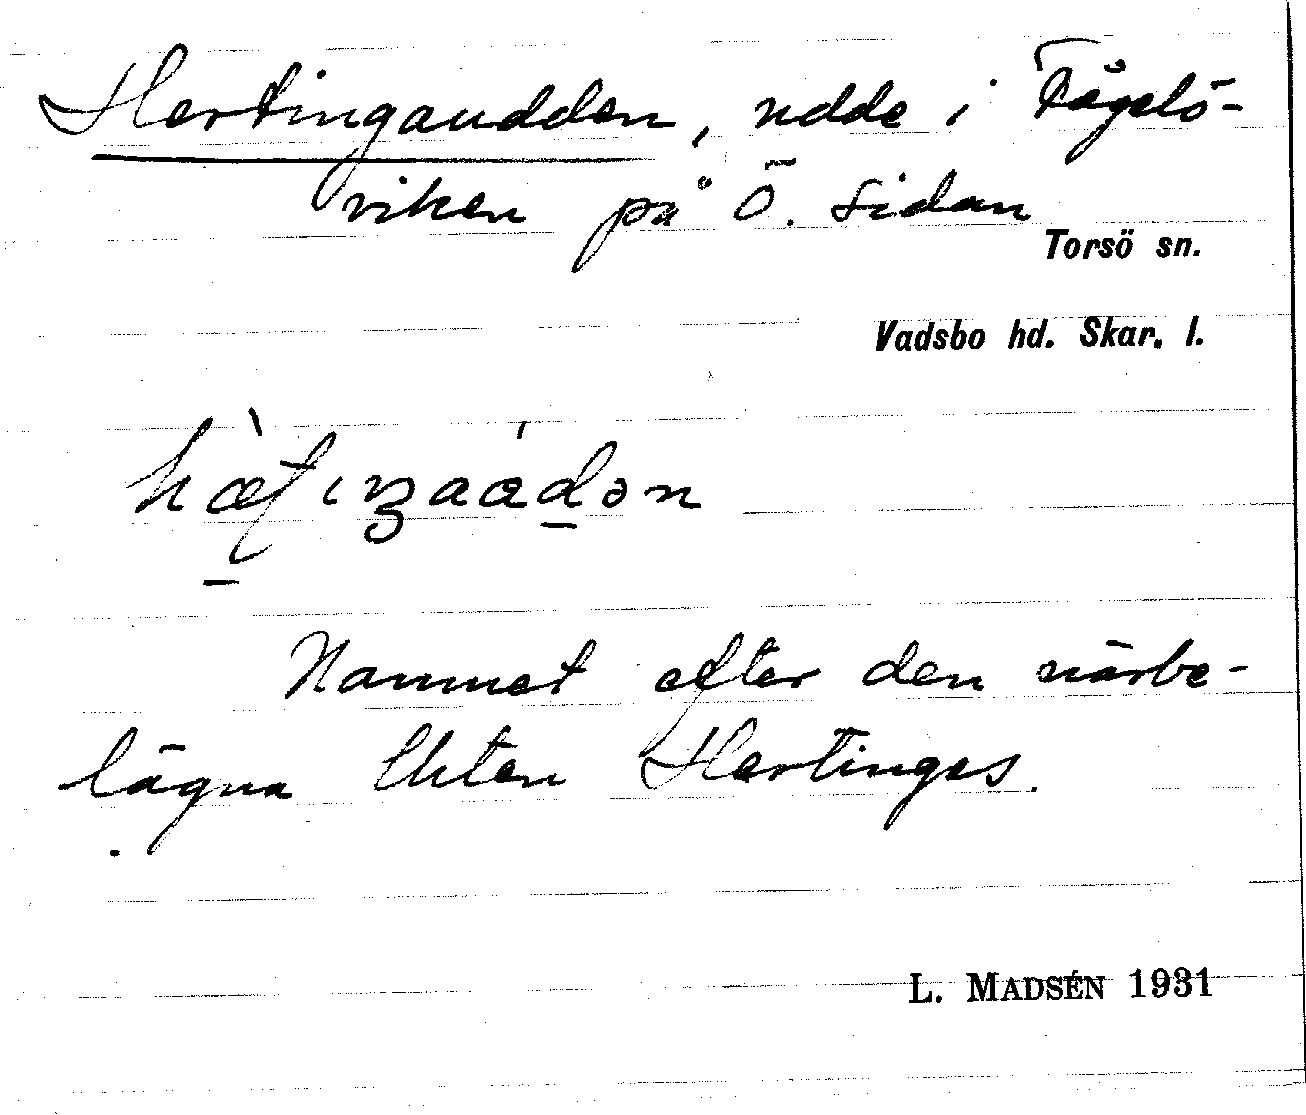 Hertingaudden, udde i Fågelö-
viken på Ö. sidan
Torsö sn.
Vadsbo hd. Skar. l.
Namnet efter den närbe-
lägna tkten Hertinges.
L. MADSÉN 1931